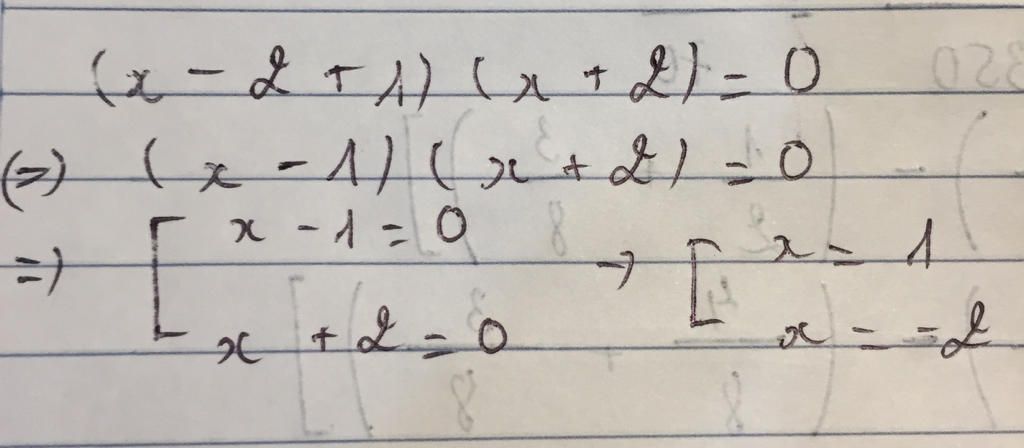 (x - 2 + 1) (x + 2) = 0
(=) (x - 1) (x + 2) = 0
=) [ x - 1 = 0 → [ x = 1
x + 2 = 0 x = -2